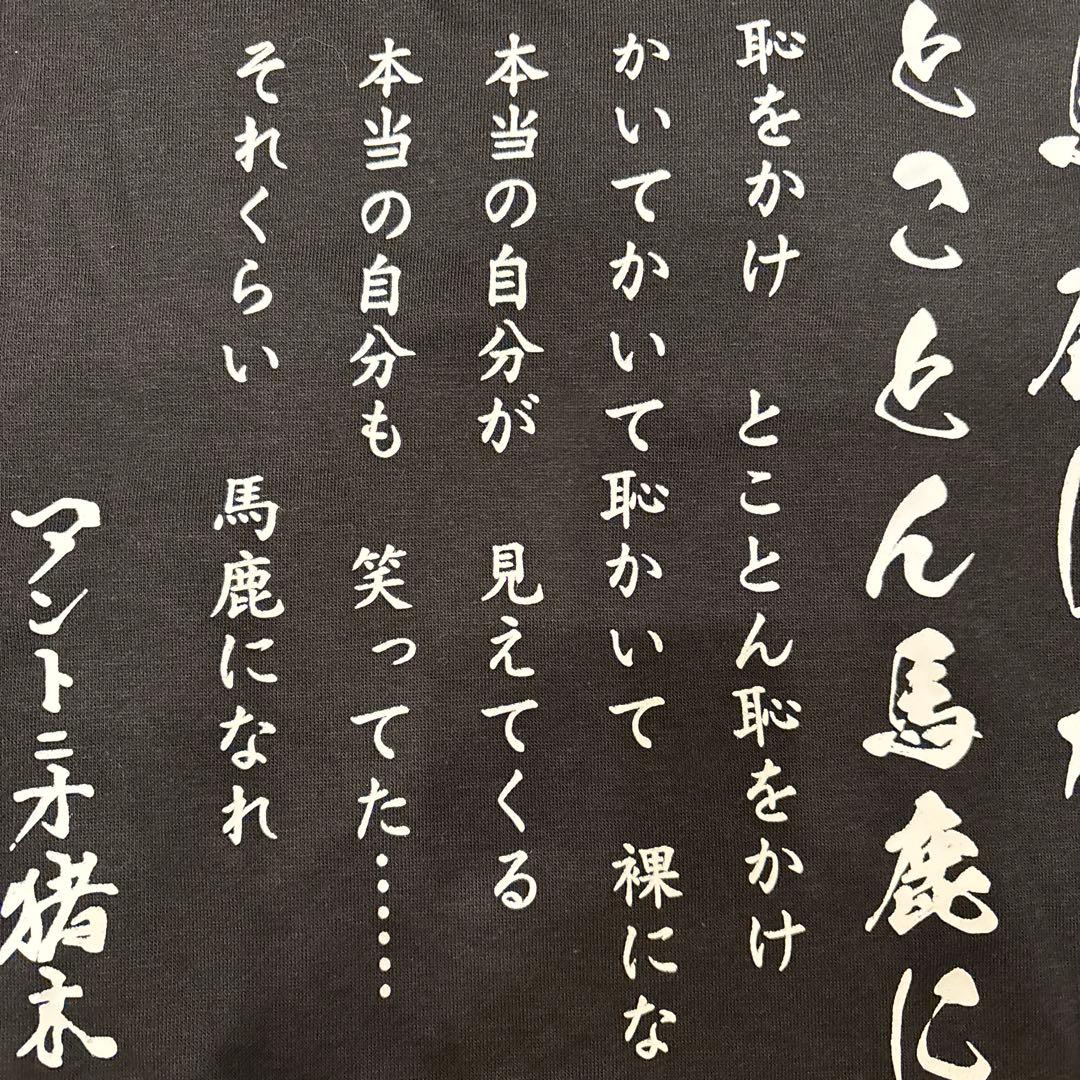 とことん馬鹿に
恥をかけ とことん恥をかけ
かいてかいて恥かいて 裸にな
本当の自分が 見えてくる
本当の自分も 笑ってた……
それくらい 馬鹿になれ
アントニオ猪木